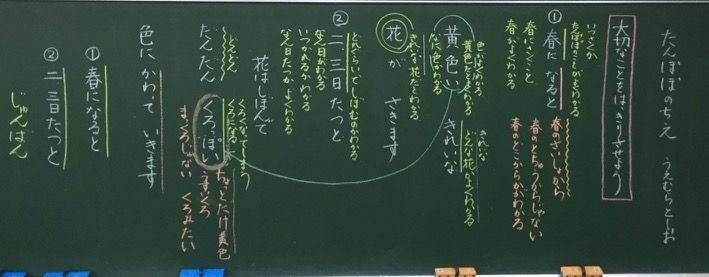 たんぽぽのちえ　うえむらとしお
大切なことをはっきりさせよう
いつさくか
たんぽぽのことがよくわかる
①
春に なると
春にさくこと
春がよくわかる
春のさいしょから
春のとちゅうからじゃない
春のどこからかがわかる
黄色い きれいな
色がわかる
黄色だとよくわかる
なに色かわかる
きれいな
どんな花かよくわかる
花が さきます
きれいな花だとわかる
②
二、三日たつと
どれぐらいでしぼむのかわかる
いつかれるかわかる
なん日かわかる
なん日たったかよくわかる
花はしぼんで
だんだん くろっぽい
どんどん
くろくなってしまう
くろになる
ちょっとだけ黄色
うすいくろ
まっくろじゃない くろみたい
色に かわって いきます
① 春になると
② 二、三日たつと
じゅんばん